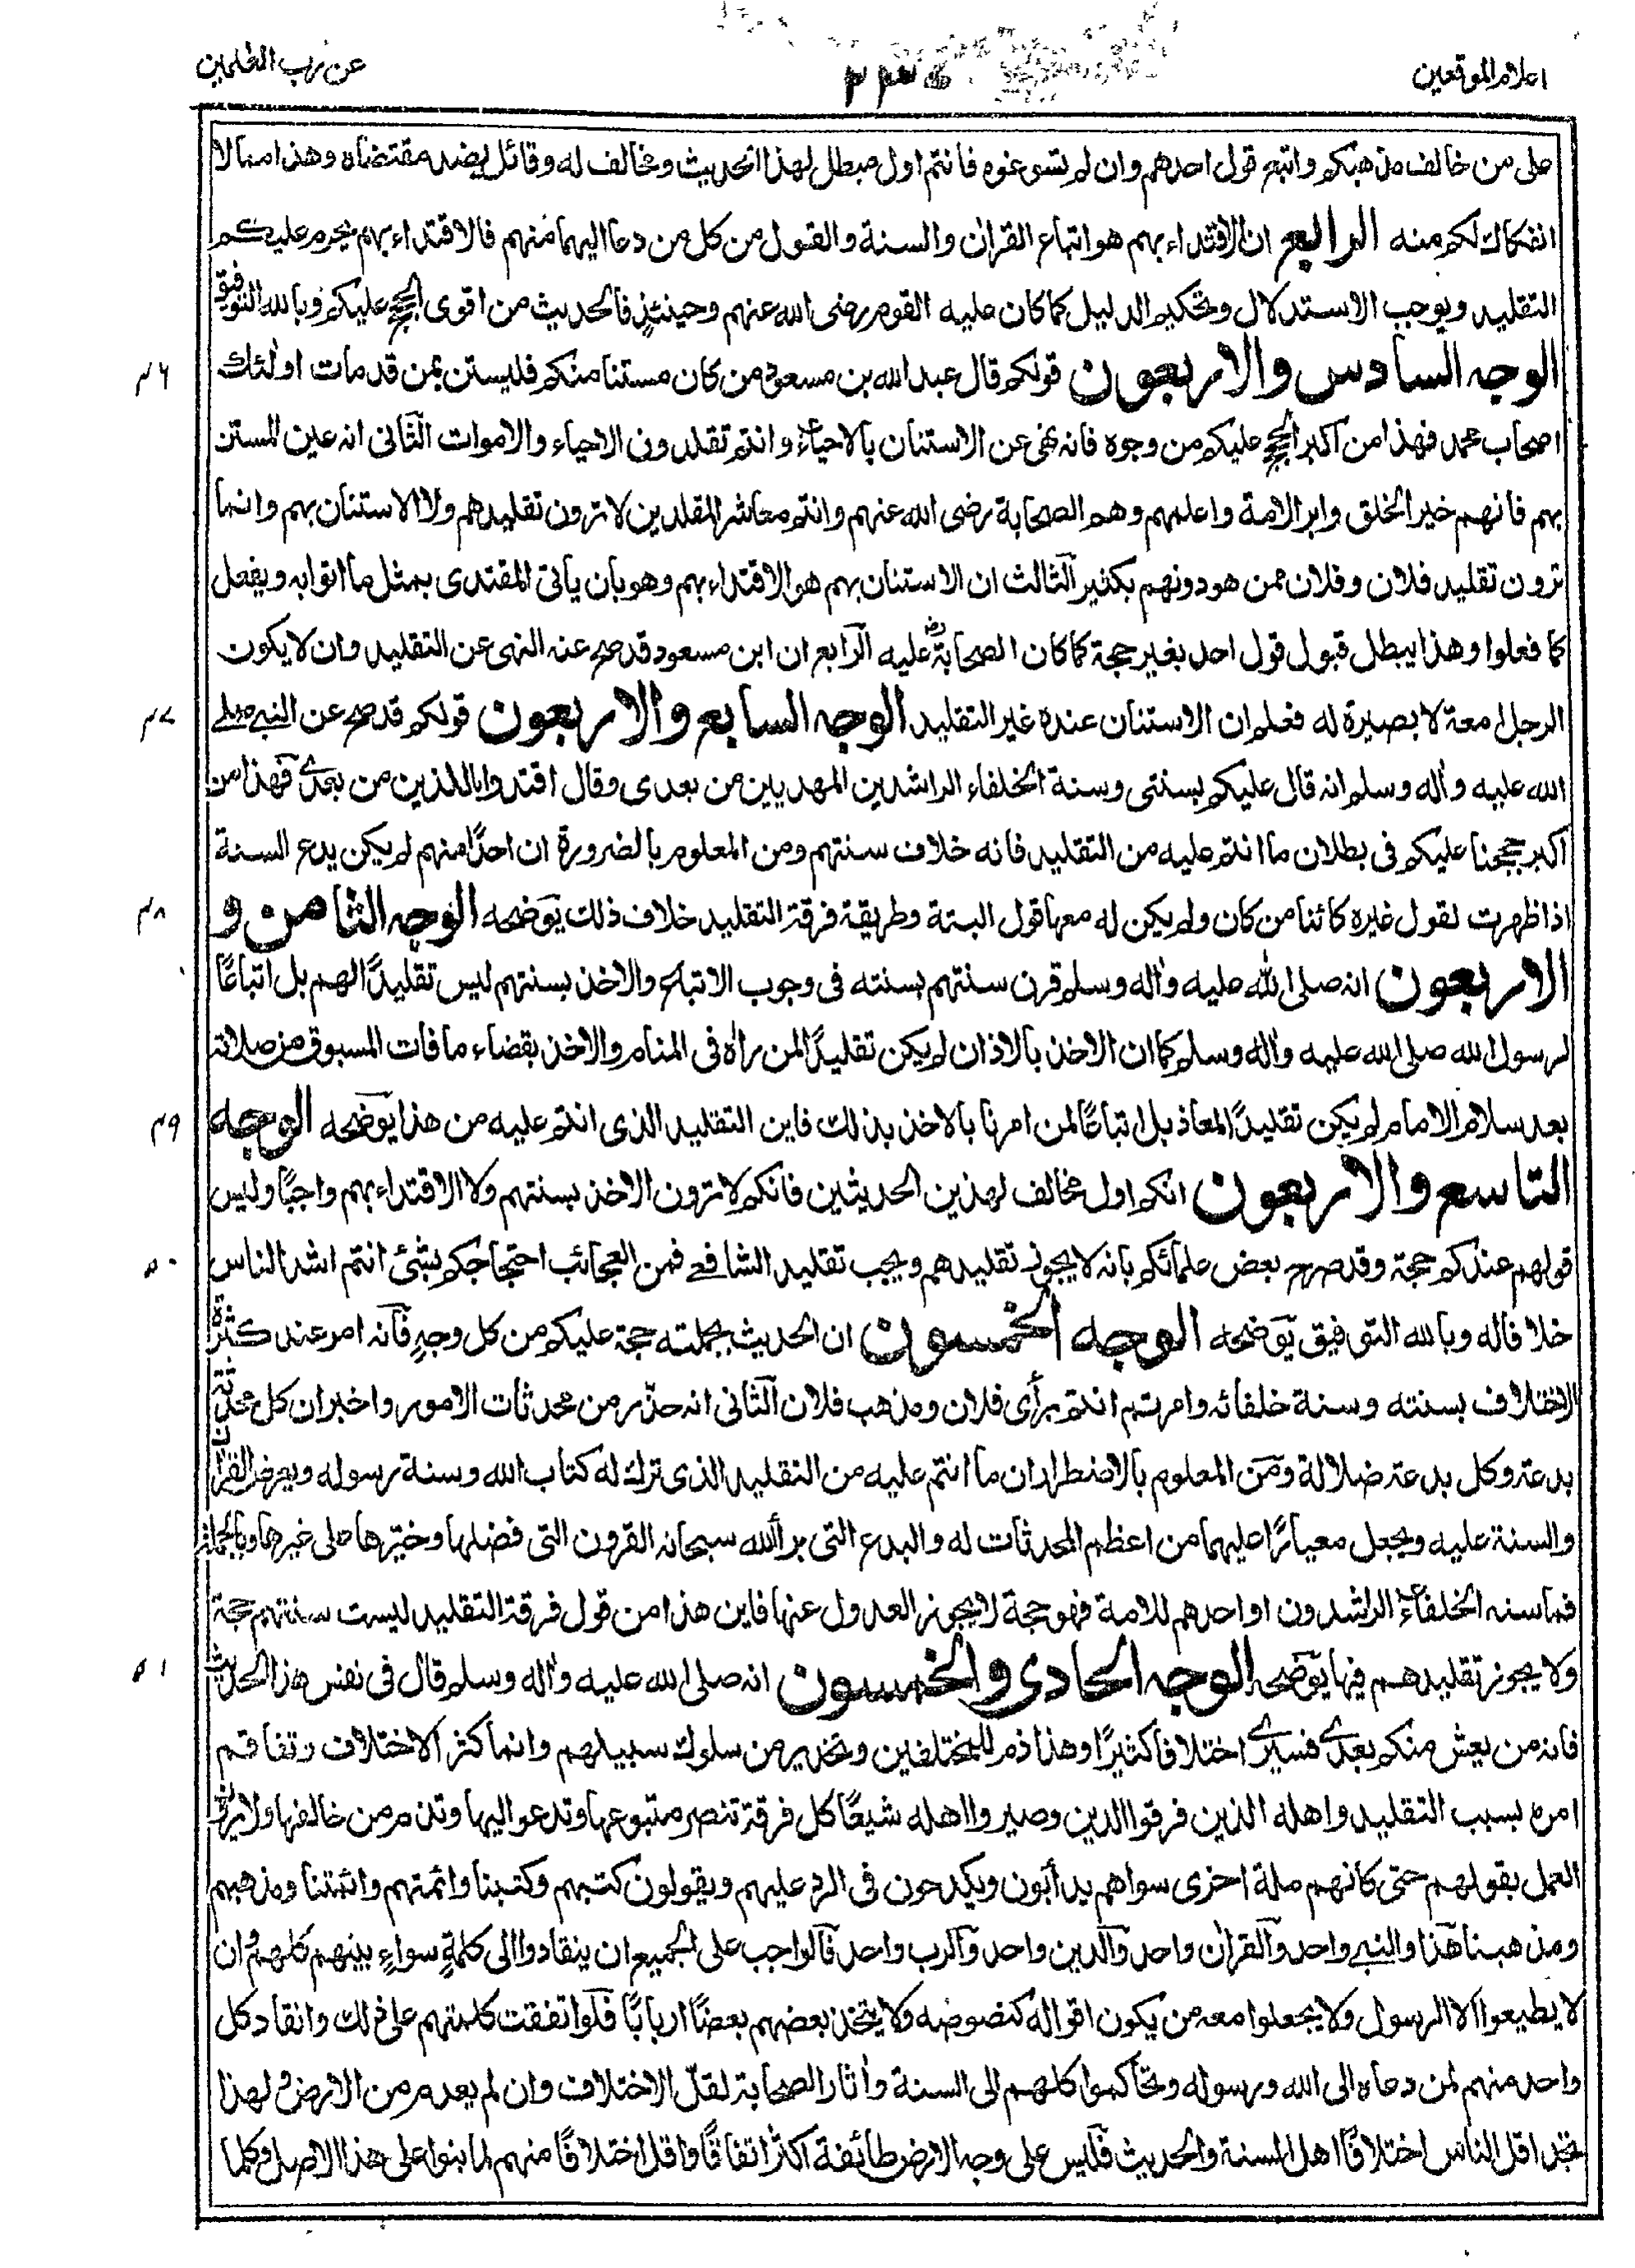 اعلام الموقعين
عن رب العلمين
على من خالف مذهبكم واتبع قول احدهم وان لم تسوغوه فانتم اول مبطل لهذا الحديث ومخالف له وقائل بضد مقتضاه وهذا مما لا
انفكاك لكم منه الرابع ان الاقتداء بهم هو اتباع القران والسنة والقبول من كل من دعا اليهما منهم فالاقتداء بهم يحرم عليكم
التقليد ويوجب الاستدلال وتحكيم الدليل كما كان عليه القوم رضى الله عنهم وحينئذٍ فالحديث من اقوى الحجج عليكم وبالله التوفيق
الوجه السادس والاربعون قولكم قال عبد الله بن مسعود من كان مستنا منكم فليستن بمن قد مات اولٰئك ۴۶
اصحاب محمد فهذا من اكبر الحجج عليكم من وجوه فانه نهى عن الاستنان بالاحياء وانتم تقلدون الاحياء والاموات الثانى انه عين المستن
بهم فانهم خير الخلق وابر الامة واعلمهم وهم الصحابة رضى الله عنهم وانتم معاشر المقلدين لا ترون تقليدهم ولا الاستنان بهم وانما
ترون تقليد فلان وفلان ممن هو دونهم بكثير الثالث ان الاستنان بهم هو الاقتداء بهم وهو بان ياتى المقتدى بمثل ما اتوا به ويفعل
كما فعلوا وهذا يبطل قبول قول احد بغير حجة كما كان الصحابةؓ عليه الرابع ان ابن مسعود قد صح عنه النهى عن التقليد وان لا يكون
الرجل امعة لا بصيرة له فعلم ان الاستنان عنده غير التقليد الوجه السابع والاربعون قولكم قد صح عن النبے صلے ۴۷
الله عليه واٰله وسلم انه قال عليكم بسنتى وسنة الخلفاء الراشدين المهديين من بعدى وقال اقتدوا باللذين من بعدے فهذا من
اكبر حججنا عليكم فى بطلان ما انتم عليه من التقليد فانه خلاف سنتهم ومن المعلوم بالضرورة ان احدًا منهم لم يكن يدع السنة
اذا ظهرت لقول غيره كائنا من كان ولم يكن له معها قول البتة وطريقة فرقة التقليد خلاف ذلك يوضحه الوجه الثامن و ۴۸
الاربعون انه صلى الله عليه واٰله وسلم قرن سنتهم بسنته فى وجوب الاتباع والاخذ بسنتهم ليس تقليدًا لهم بل اتباعًا
لرسول الله صلى الله عليه واٰله وسلم كما ان الاخذ بالاذان لم يكن تقليدًا لمن راٰه فى المنام والاخذ بقضاء ما فات المسبوق من صلاته
بعد سلام الامام لم يكن تقليدًا لمعاذ بل اتباعًا لمن امرنا بالاخذ بذلك فاين التقليد الذى انتم عليه من هذا يوضحه الوجه ۴۹
التاسع والاربعون انكم اول مخالف لهذين الحديثين فانكم لا ترون الاخذ بسنتهم ولا الاقتداء بهم واجبًا وليس
قولهم عندكم حجة وقد صرح بعض علمائكم بانه لا يجوز تقليدهم ويجب تقليد الشافعے فمن العجائب احتجاجكم بشئ انتم اشد الناس ۵۰
خلافا له وبالله التوفيق يوضحه الوجه الخمسون ان الحديث بجملته حجة عليكم من كل وجهٍ فانه امر عند كثرة
الاختلاف بسنته وسنة خلفائه وامرتم انتم برأى فلان ومذهب فلان الثانى انه حذّر من محدثات الامور واخبر ان كل محدثة
بدعة وكل بدعة ضلالة ومن المعلوم بالاضطرار ان ما انتم عليه من التقليد الذى ترك له كتاب الله وسنة رسوله ويعرض القران
والسنة عليه ويجعل معيارًا عليهما من اعظم المحدثات له والبدع التى برأ الله سبحانه القرون التى فضلها وخيّرها على غيرها وبالجملة
فما سنه الخلفاء الراشدون او احدهم للامة فهو حجة لا يجوز العدول عنها فاين هذا من قول فرقة التقليد ليست سنتهم حجة
ولا يجوز تقليدهم فيها يوضحه الوجه الحادى والخمسون انه صلى الله عليه واٰله وسلم قال فى نفس هذا الحديث ۵۱
فانه من يعش منكم بعدے فسيرے اختلافا كثيرًا وهذا ذم للمختلفين وتحذير من سلوك سبيلهم وانما كثر الاختلاف وتفاقم
امره بسبب التقليد واهله الذين فرقوا الدين وصيروا اهله شيعًا كل فرقة تنصر متبوعها وتدعو اليها وتذم من خالفها ولا يرون
العمل بقولهم حتى كانهم ملة اخرى سواهم يدأبون ويكدحون فى الرد عليهم ويقولون كتبهم وكتبنا وائمتهم وائمتنا ومذهبهم
ومذهبنا هذا والنبے واحد والقران واحد والدين واحد والرب واحد فالواجب على الجميع ان ينقادوا الى كلمةٍ سواءٍ بينهم كلهم وان
لا يطيعوا الا الرسول ولا يجعلوا معه من يكون اقواله كنصوصه ولا يتخذ بعضهم بعضًا اربابًا فلو اتفقت كلمتهم على ذلك وانقاد كل
واحد منهم لمن دعاه الى الله ورسوله وتحاكموا كلهم الى السنة واٰثار الصحابة لقلّ الاختلاف وان لم يعدم من الارض ولهذا
تجد اقل الناس اختلافًا اهل السنة والحديث فليس على وجه الارض طائفة اكثر اتفاقًا واقل اختلافًا منهم لما بنوا على هذا الاصل وكلما